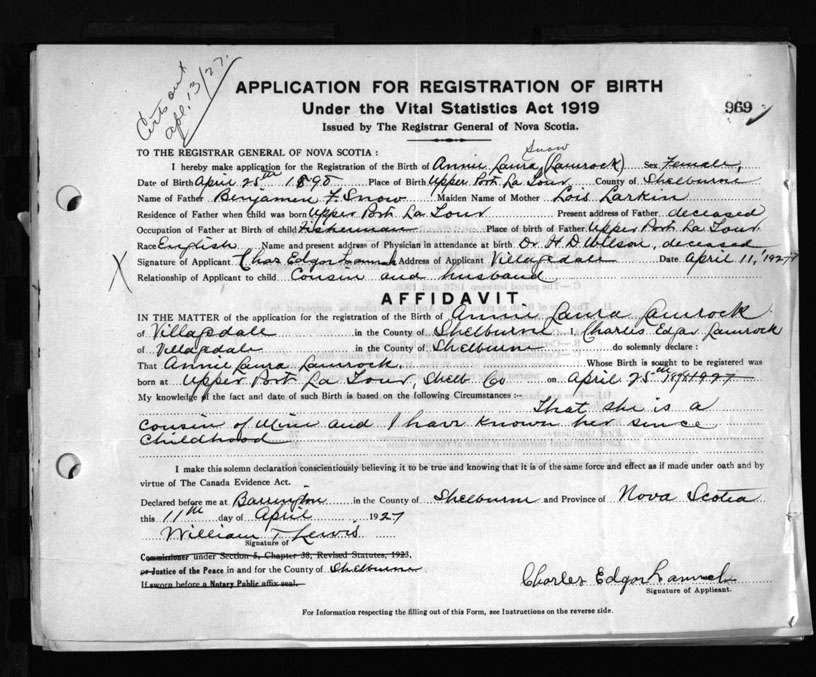 Certs out
Apl. 13/27.
APPLICATION FOR REGISTRATION OF BIRTH
Under the Vital Statistics Act 1919
969
Issued by The Registrar General of Nova Scotia.
TO THE REGISTRAR GENERAL OF NOVA SCOTIA :
Snow
I hereby make application for the Registration of the Birth of Annie Laura (Lamrock) Sex Female,
Date of Birth April 25th 1890 Place of Birth Upper Port La Tour County of Shelburne
Name of Father Benjamin F. Snow Maiden Name of Mother Lois Larkin
Residence of Father when child was born Upper Port La Tour Present address of Father deceased
Occupation of Father at Birth of child Fisherman Place of birth of Father Upper Port La Tour
Race English Name and present address of Physician in attendance at birth Dr. H. D. Wilson, deceased
Signature of Applicant Chas Edgar Lamrock Address of Applicant Villagedale Date April 11, 1927
X Relationship of Applicant to child Cousin and husband
AFFIDAVIT.
IN THE MATTER of the application for the registration of the Birth of Annie Laura Lamrock
of Villagedale in the County of Shelburne I, Charles Edgar Lamrock
of Villagedale in the County of Shelburne do solemnly declare :
That Annie Laura Lamrock. Whose Birth is sought to be registered was
born at Upper Port La Tour, Shelb Co on April 25th 1927
My knowledge of the fact and date of such Birth is based on the following Circumstances :-
That she is a
Cousin of Mine and I have known her since
Childhood
I make this solemn declaration conscientiously believing it to be true and knowing that it is of the same force and effect as if made under oath and by
virtue of The Canada Evidence Act.
Declared before me at Barrington in the County of Shelburne and Province of Nova Scotia
this 11th day of April 1927
William T Lewis
Signature of
Commissioner under Section 5, Chapter 38, Revised Statutes, 1923,
or Justice of the Peace in and for the County of Shelburne
If sworn before a Notary Public affix seal.
Charles Edgar Lamrock
Signature of Applicant.
For Information respecting the filling out of this Form, see Instructions on the reverse side.